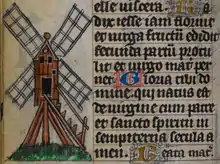 elle viscera.
dix iesse iam floruit
et virga fructū edidit
fecunda partū protu
lit et virgo mat' per
net Gloria tibi do
mine qui natus es
de virgine cum patre
et sancto spiritu in
sempiterna secula a
men. Beata mat'